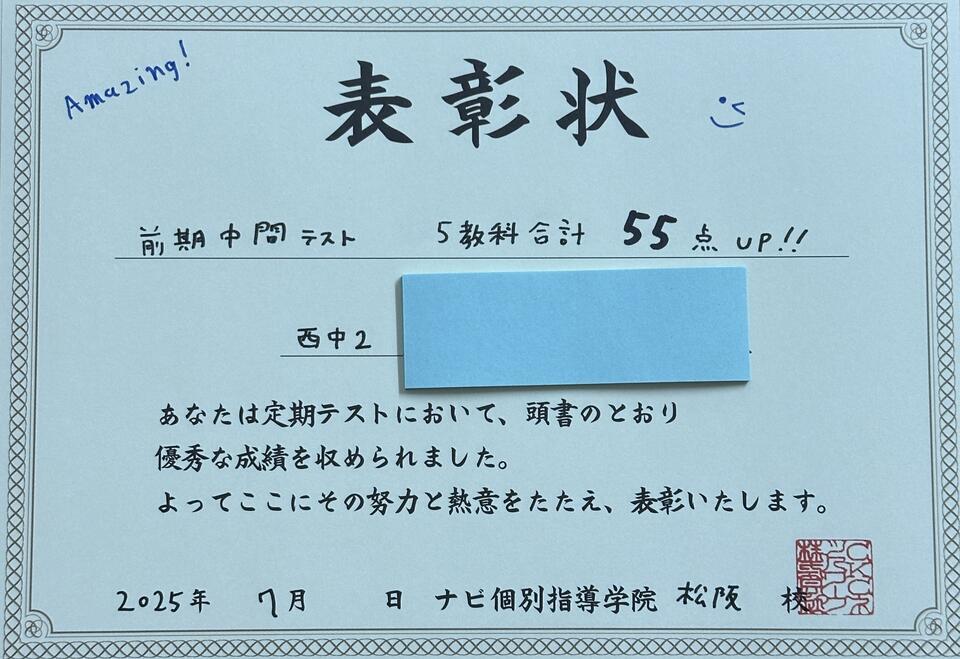 Amazing!
表彰状
前期中間テスト 5教科合計 55点 UP!!
西中2
あなたは定期テストにおいて、頭書のとおり
優秀な成績を収められました。
よってここにその努力と熱意をたたえ、表彰いたします。
2025年 7月 日 ナビ個別指導学院 松阪 校